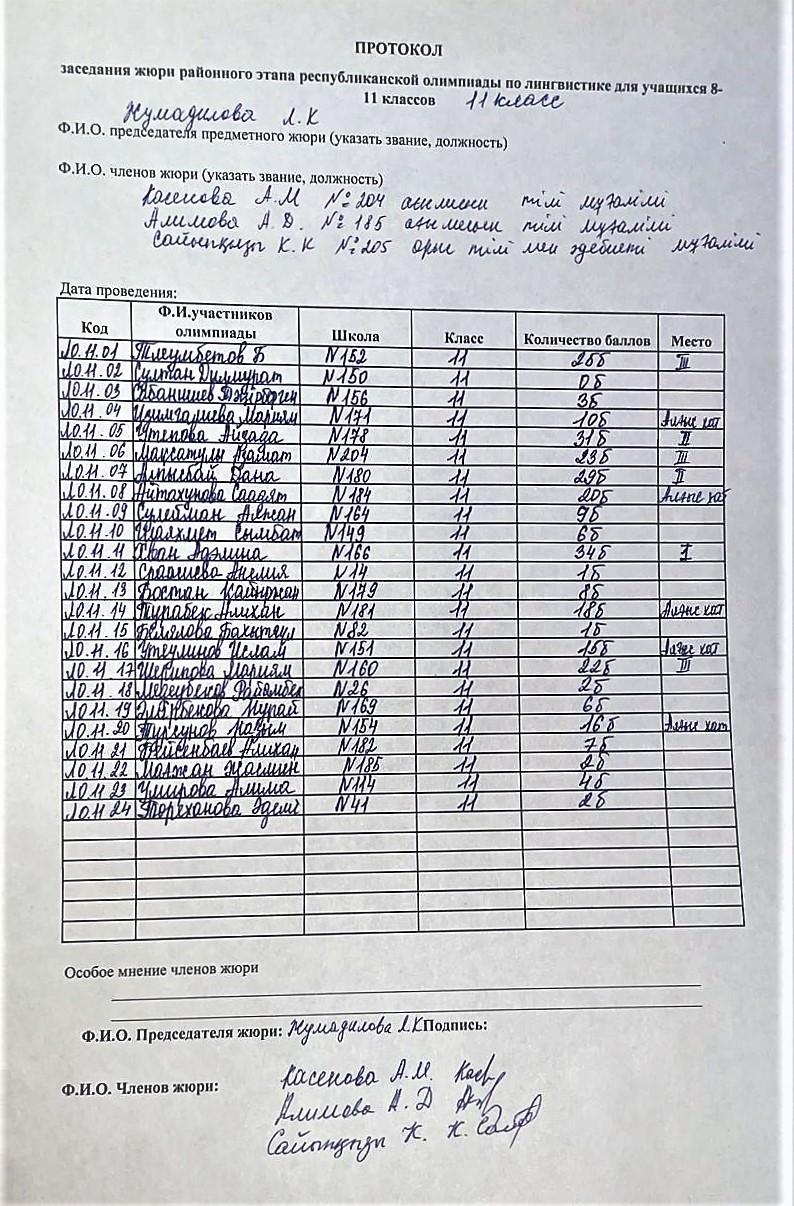 ПРОТОКОЛ
заседания жюри районного этапа республиканской олимпиады по лингвистике для учащихся 8-
11 классов 11 класс
Жумадилова Л.К
Ф.И.О. председателя предметного жюри (указать звание, должность)
Ф.И.О. членов жюри (указать звание, должность)
Касенова А.М №204 ағылшын тілі мұғалімі
Алимова А.Д. №185 ағылшын тілі мұғалімі
Сайынқызы К.К №205 орыс тілі мен әдебиеті мұғалімі
Дата проведения:
Код Ф.И.участников олимпиады Школа Класс Количество баллов Место
10.11.01 Тлеумбетов Б N152 11 25б III
10.11.02 Султан Дилмурат N150 11 0б
10.11.03 N156 11 3б
10.11.04 Мариям N171 11 10б Алғыс хат
10.11.05 Утепова Айзада N178 11 31б II
10.11.06 Мақсатұлы Азамат N204 23б III
10.11.07 Алпысбай Дана N180 11 29б II
10.11.08 Айтахунова Саадят N184 11 20б Алғыс хат
10.11.09 Сулейман Алжан N164 11 9б
10.11.10 Шаяхмет Сымбат N149 11 6б
10.11.11 Хван Адэлина N166 11 34б I
10.11.12 Анелия N14 11 1б
10.11.13 Бостан N179 11 8б
10.11.14 Тұрабек Алихан N181 11 18б Алғыс хат
10.11.15 Белялова Бахытгул N82 11 1б
10.11.16 Утеулинов Ислам N151 11 15б Алғыс хат
10.11 17 Шерипова Мариям N160 11 22б III
10.11.18 N26 11 2б
10.11.19 Нурай N169 11 6б
10.11.20 Турсунов Назым N154 11 16б Алғыс хат
10.11 21 Бейсенбаев Алихан N182 11 7б
10.11.22 Малжан Жасмин N185 11 2б
10.11 23 Умирова Алима N114 11 4б
10.11 24 Тореханова Әдемі N41 11 2б
Особое мнение членов жюри
Ф.И.О. Председателя жюри: Жумадилова Л.К Подпись:
Ф.И.О. Членов жюри: Касенова А.М.
Алимова А.Д
Сайынқызы К. К.